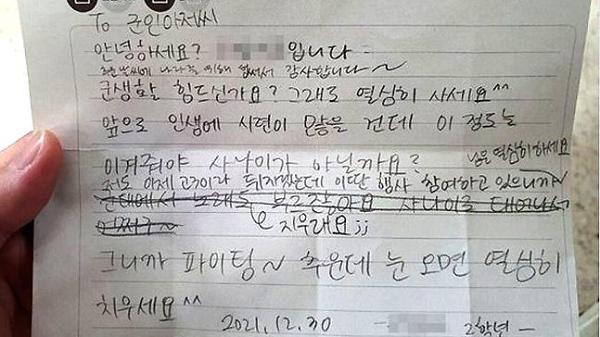 To 군인아저씨
안녕하세요? 입니다
추운 날씨에 나라를 위해 힘써서 감사합니다~
군생활 힘드신가요? 그래도 열심히 사세요^^
앞으로 인생에 시련이 많을 건데 이 정도는
이겨줘야 사나이가 아닐까요?
저도 이제 고3이라 뒤지겠는데 이딴 행사 참여하고 있으니까
님은 열심히하세요
군대에서 노래도 부르잖아요 사나이로 태어나서
어쩌구~
지우래요;;
그니까 파이팅~ 추운데 눈 오면 열심히
치우세요^^
2021.12.30 - 2학년 -